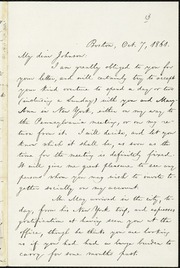 Boston, Oct. 7, 1861.
My dear Johnson:
I am greatly obliged to you for
your letter, and will certainly try to accept
your kind invitation to spend a day or two
(including a Sunday) with you and Mary
Ann in New York, either on my way to
the Pennsylvania meeting, or on my re-
turn from it. I will decide, and let you
know which it shall be, as soon as the
time for the meeting is definitely fixed.
It will give me great pleasure to see any
person whom you may wish to invite to
gather socially on my account.
Mr. May arrived in the city, to-
day, from his New York trip, and expresses
gratification at having seen you at the
office, though he thinks you are looking
as if you had had a large burden to
carry for some months past.